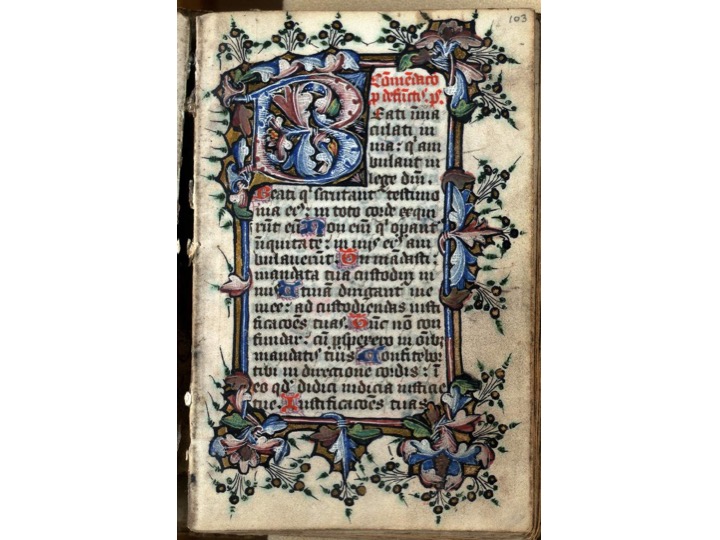 103
Cōmēdacō
p defūctis. ps.
Beati īma
culati in
uia: q' am
bulant in
lege dn̄i.
Beati q' scrutant' testimo
nia eꝰ: in toto corde exqui
rūt eū Non eni q' opant'
iniquitatē: in uijs eꝰ am
bulauerūt. Tu mandasti:
mandata tua custodiri ni
mis Utinā dirigant' uie
mee: ad custodiendas iusti
ficacōes tuas. Tūc nō con
fundar: cū ꝑspexero in oībꝫ
mandatis tuis Confitebor
tibi in directione cordis: ī
eo qd' didici iudicia iusticie
tue. Iustificacōes tuas